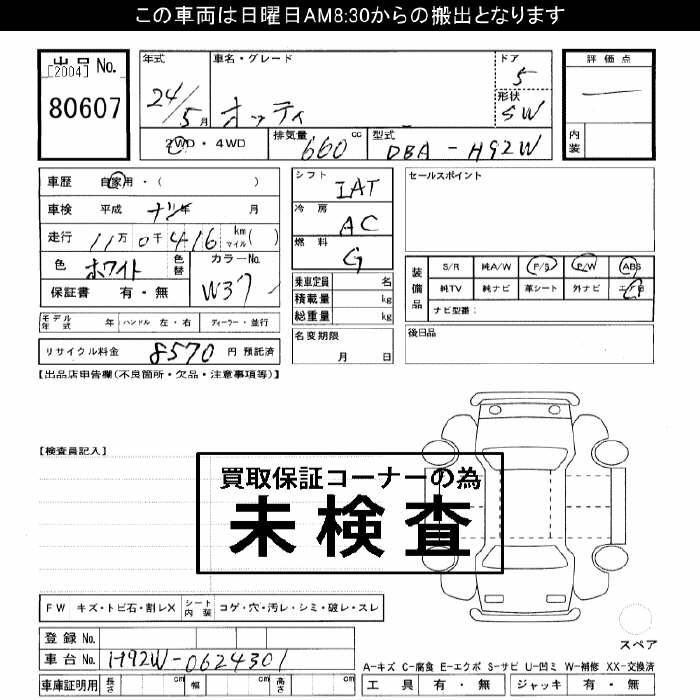 この車両は日曜日AM8:30からの搬出となります
出品No.
[2004]
80607
年式
24/5月
車名・グレード
オッティ
ドア
5
形状
SW
評価点
内装
2WD・4WD
排気量
660cc
型式
DBA-H92W
車歴 自家用・( )
車検 平成 ナシ年 月
走行 11万0千416 km マイル( )
色 ホワイト 色替
カラーNo.
W37
保証書 有・無
モデル年式 年 ハンドル 左・右 ディーラー・並行
リサイクル料金 8570 円 預託済
シフト
IAT
冷房
AC
燃料
G
乗車定員 名
積載量 kg
総重量 kg
名変期限
月 日
セールスポイント
装備品
S/R 純A/W P/S P/W ABS
純TV 純ナビ 革シート 外ナビ
ナビ型番:
後日品
【出品店申告欄(不良箇所・欠品・注意事項等)】
【検査員記入】
買取保証コーナーの為
未検査
FW キズ・トビ石・割レX シート内装 コゲ・穴・汚レ・シミ・破レ・スレ
登録No.
車台No. H92W-0624301
車庫証明用 長さ cm 幅 cm 高さ cm
スペア
A-キズ C-腐食 E-エクボ S-サビ U-凹ミ W-補修 XX-交換済
工具 有・無 ジャッキ 有・無